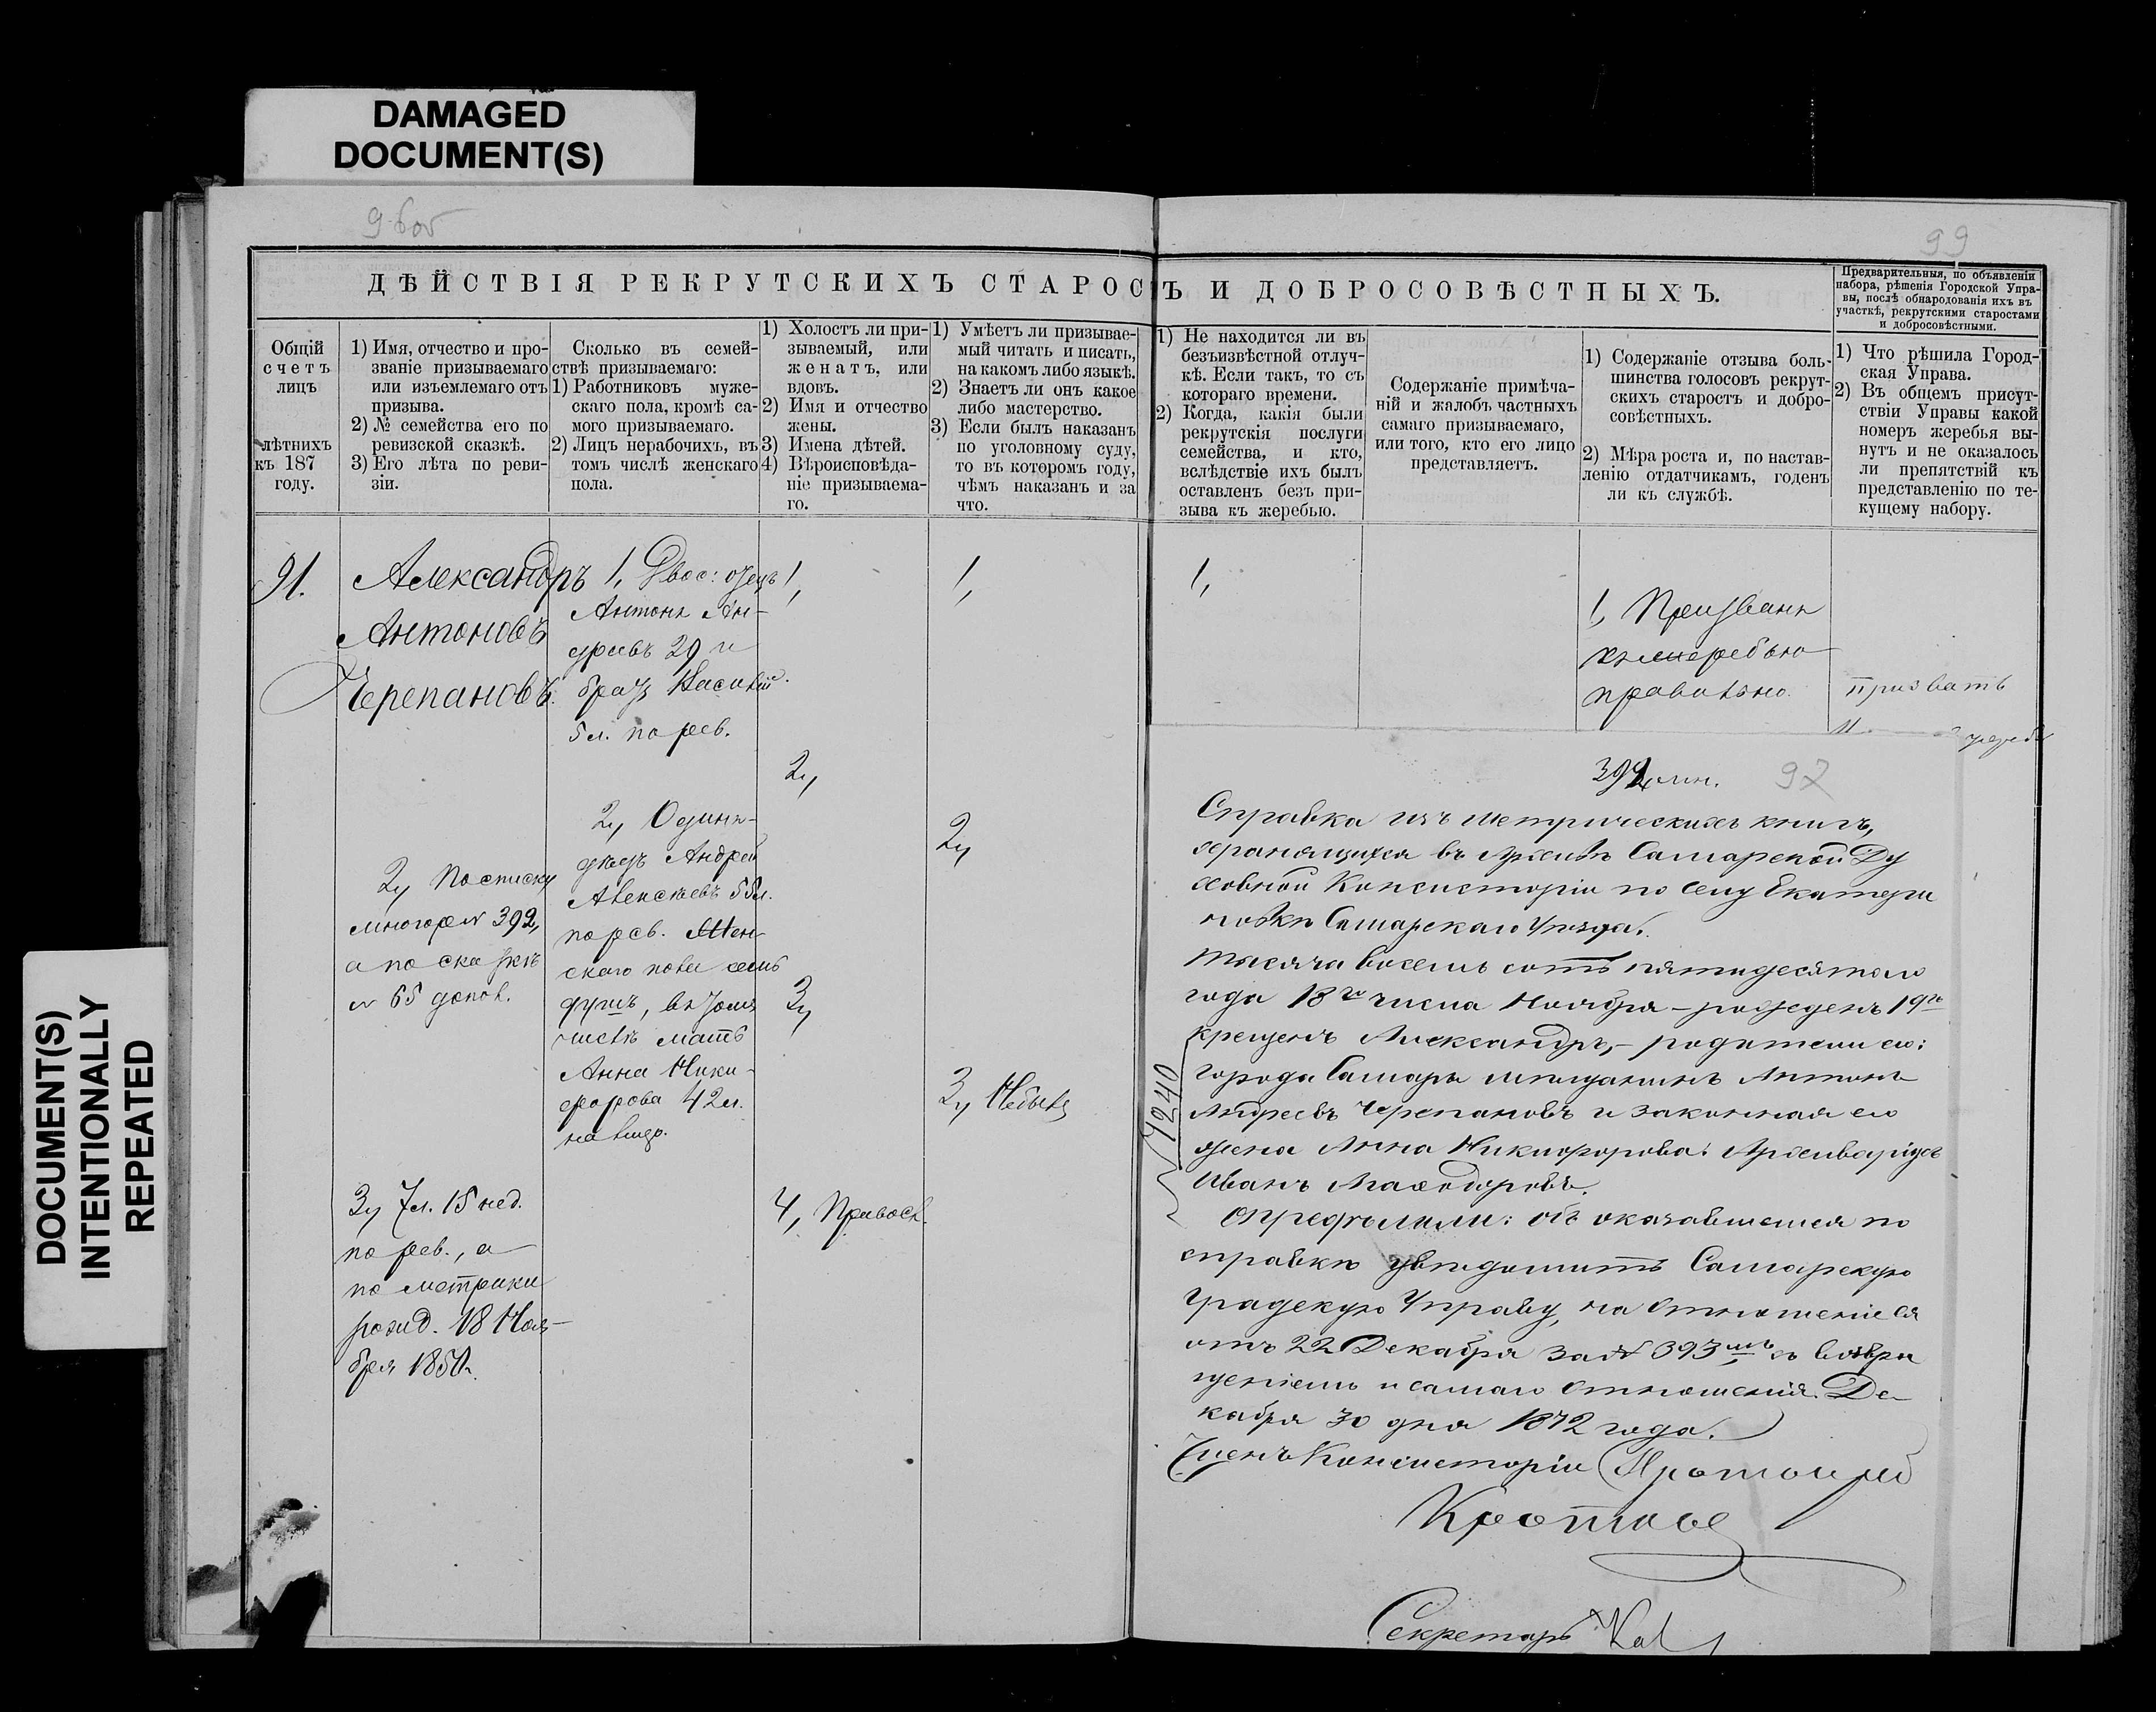 DAMAGED
DOCUMENT(S)
DOCUMENT(S)
INTENTIONALLY
REPEATED
99
ДѢЙСТВІЯ РЕКРУТСКИХЪ СТАРОС Ъ И ДОБРОСОВѢСТНЫХЪ.
Предварительныя, по объявленіи
набора, рѣшенія Городской Упра-
вы, послѣ обнародованія ихъ въ
участкѣ, рекрутскими старостами
и добросовѣстными.
Общій
счетъ
лицъ
лѣтнихъ
къ 187
году.
1) Имя, отчество и про-
званіе призываемаго
или изъемлемаго отъ
призыва.
2) № семейства его по
ревизской сказкѣ.
3) Его лѣта по реви-
зіи.
Сколько въ семей-
ствѣ призываемаго:
1) Работниковъ муже-
скаго пола, кромѣ са-
мого призываемаго.
2) Лицъ нерабочихъ, въ
томъ числѣ женскаго
пола.
1) Холостъ ли при-
зываемый, или
женатъ, или
вдовъ.
2) Имя и отчество
жены.
3) Имена дѣтей.
4) Вѣроисповѣда-
ніе призываема-
го.
1) Умѣетъ ли призывае-
мый читать и писать,
на какомъ либо языкѣ.
2) Знаетъ ли онъ какое
либо мастерство.
3) Если былъ наказанъ
по уголовному суду,
то въ которомъ году,
чѣмъ наказанъ и за
что.
1) Не находится ли въ
безъизвѣстной отлуч-
кѣ. Если такъ, то съ
котораго времени.
2) Когда, какія были
рекрутскія послуги
семейства, и кто,
вслѣдствіе ихъ былъ
оставленъ безъ при-
зыва къ жеребью.
Содержаніе примѣча-
ній и жалобъ частныхъ
самаго призываемаго,
или того, кто его лицо
представляетъ.
1) Содержаніе отзыва боль-
шинства голосовъ рекрут-
скихъ старостъ и добро-
совѣстныхъ.
2) Мѣра роста и, по настав-
ленію отдатчикамъ, годенъ
ли къ службѣ.
1) Что рѣшила Город-
ская Управа.
2) Въ общемъ присут-
ствіи Управы какой
номеръ жеребья вы-
нутъ и не оказалось
ли препятствій къ
представленію по те-
кущему набору.
91.
Александръ
Антоновъ
Черепановъ.
2, По списку
многор № 392,
а по сказкѣ
№ 65 допол.
3, 7 л. 15 нед.
по рев., а
по метрики
рожд. 18 Ноя-
бря 1850 г.
1, Двое: отецъ
Антонъ Ан-
дреевъ 29 и
братъ Василій
5 л. по рев.
2, Одинъ-
дѣдъ Андрей
Алексѣевъ 55 л.
по рев. Жен-
скаго пола семь
душъ, въ томъ
числѣ мать
Анна Ники-
форова 42 л.
на лицо.
1,
2,
3,
4, Правосл.
1,
2,
3, Небылъ
1,
1, Призванъ
къ жеребью
правильно.
призвать
97
Справка изъ метрическихъ книгъ,
хранящихся въ Архивѣ Самарской Ду
ховной Консисторіи по селу Екатери
новкѣ Самарскаго Уѣзда.
Тысяча восемь сотъ пятидесятаго
года 18го числа Ноября – рожденъ 19го
крещенъ Александръ, – родители его:
города Самары мѣщанинъ Антонъ
Андреевъ Черепановъ и законная его
жена Анна Никифорова. Архиваріусъ
Иванъ
№ 1240
Опредѣлили: объ оказавшемся по
справкѣ увѣдомить Самарскую
Градскую Управу, на отношеніе ея
отъ 22 Декабря за № 393мъ съ возвра
щеніемъ и самаго отношенія. Де-
кабря 30 дня 1872 года.
Членъ Консисторіи Протоіерей
Секретарь